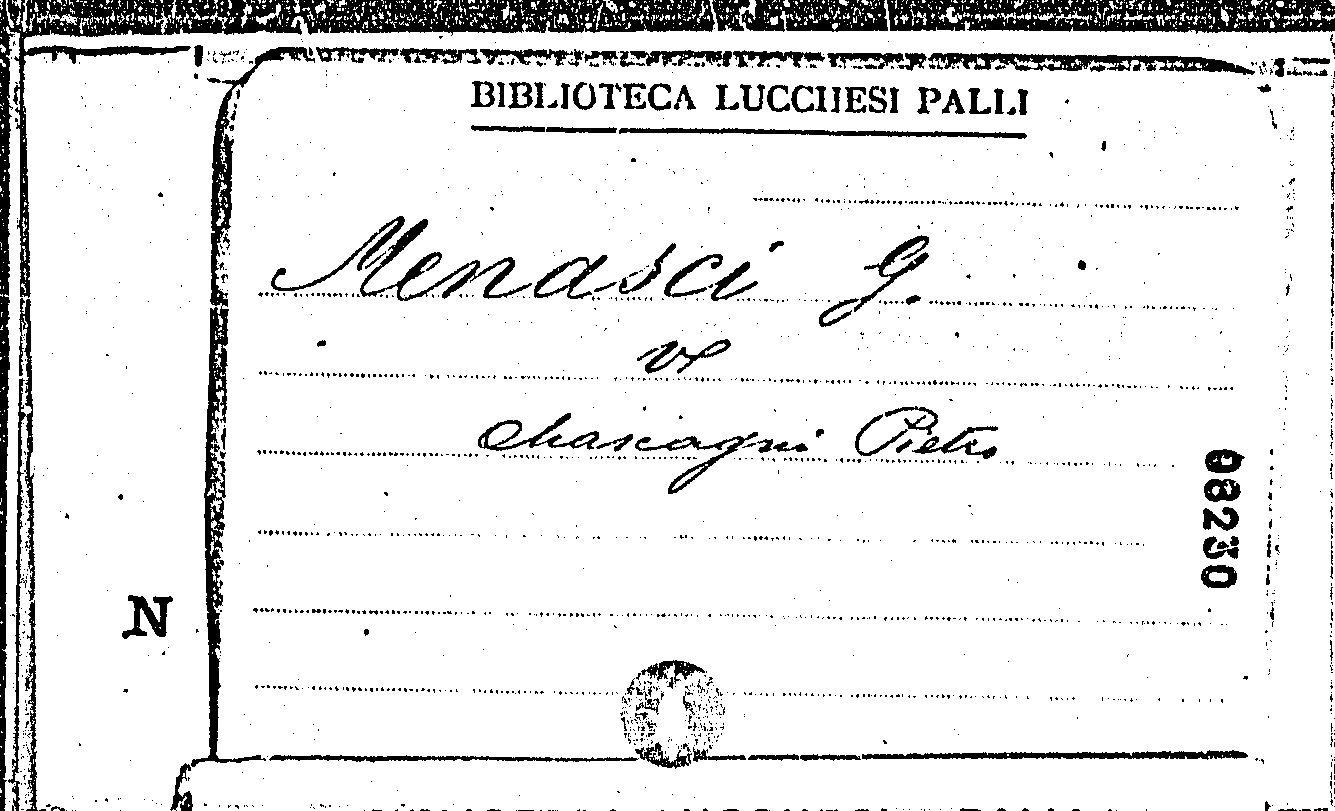 BIBLIOTECA LUCCHESI PALLI
Menasci G.
v
Mascagni Pietro
08230
N